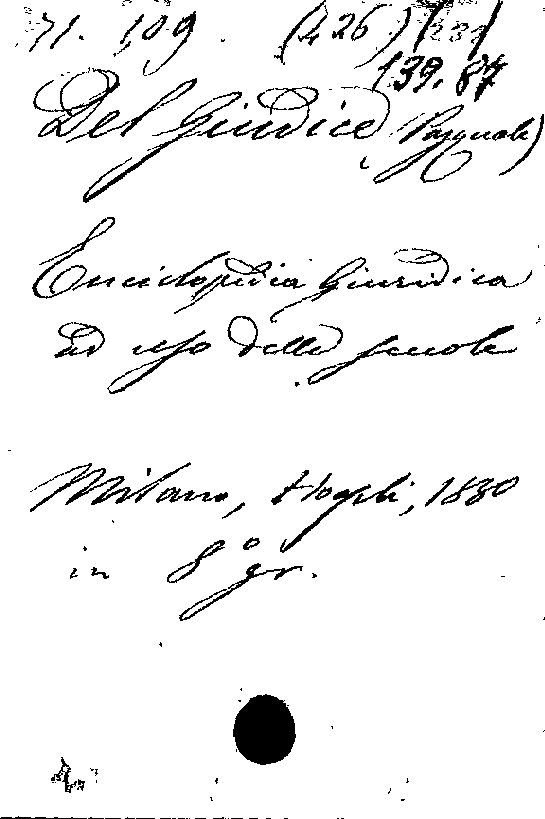 71. 109. (426)
139.87
Del Giudice (Pasquale)
Enciclopedia Giuridica
ad uso delle scuole
Milano, Hoepli, 1880
in 8° gr.